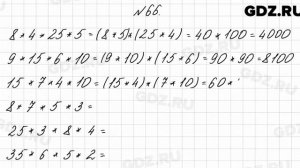 GDZ.RU
№66.
8 * 4 * 25 * 5 = (8 * 5)*(25 * 4) = 40 * 100 = 4000
9 * 15 * 6 * 10 = (9 * 10) * (15 * 6) = 90 * 90 = 8100
15 * 7 * 4 * 10 = (15 * 4) * (7 * 10) = 60 *
8 * 7 * 5 * 3 =
25 * 3 * 8 * 4 =
35 * 6 * 5 * 2 =
GDZ.RU